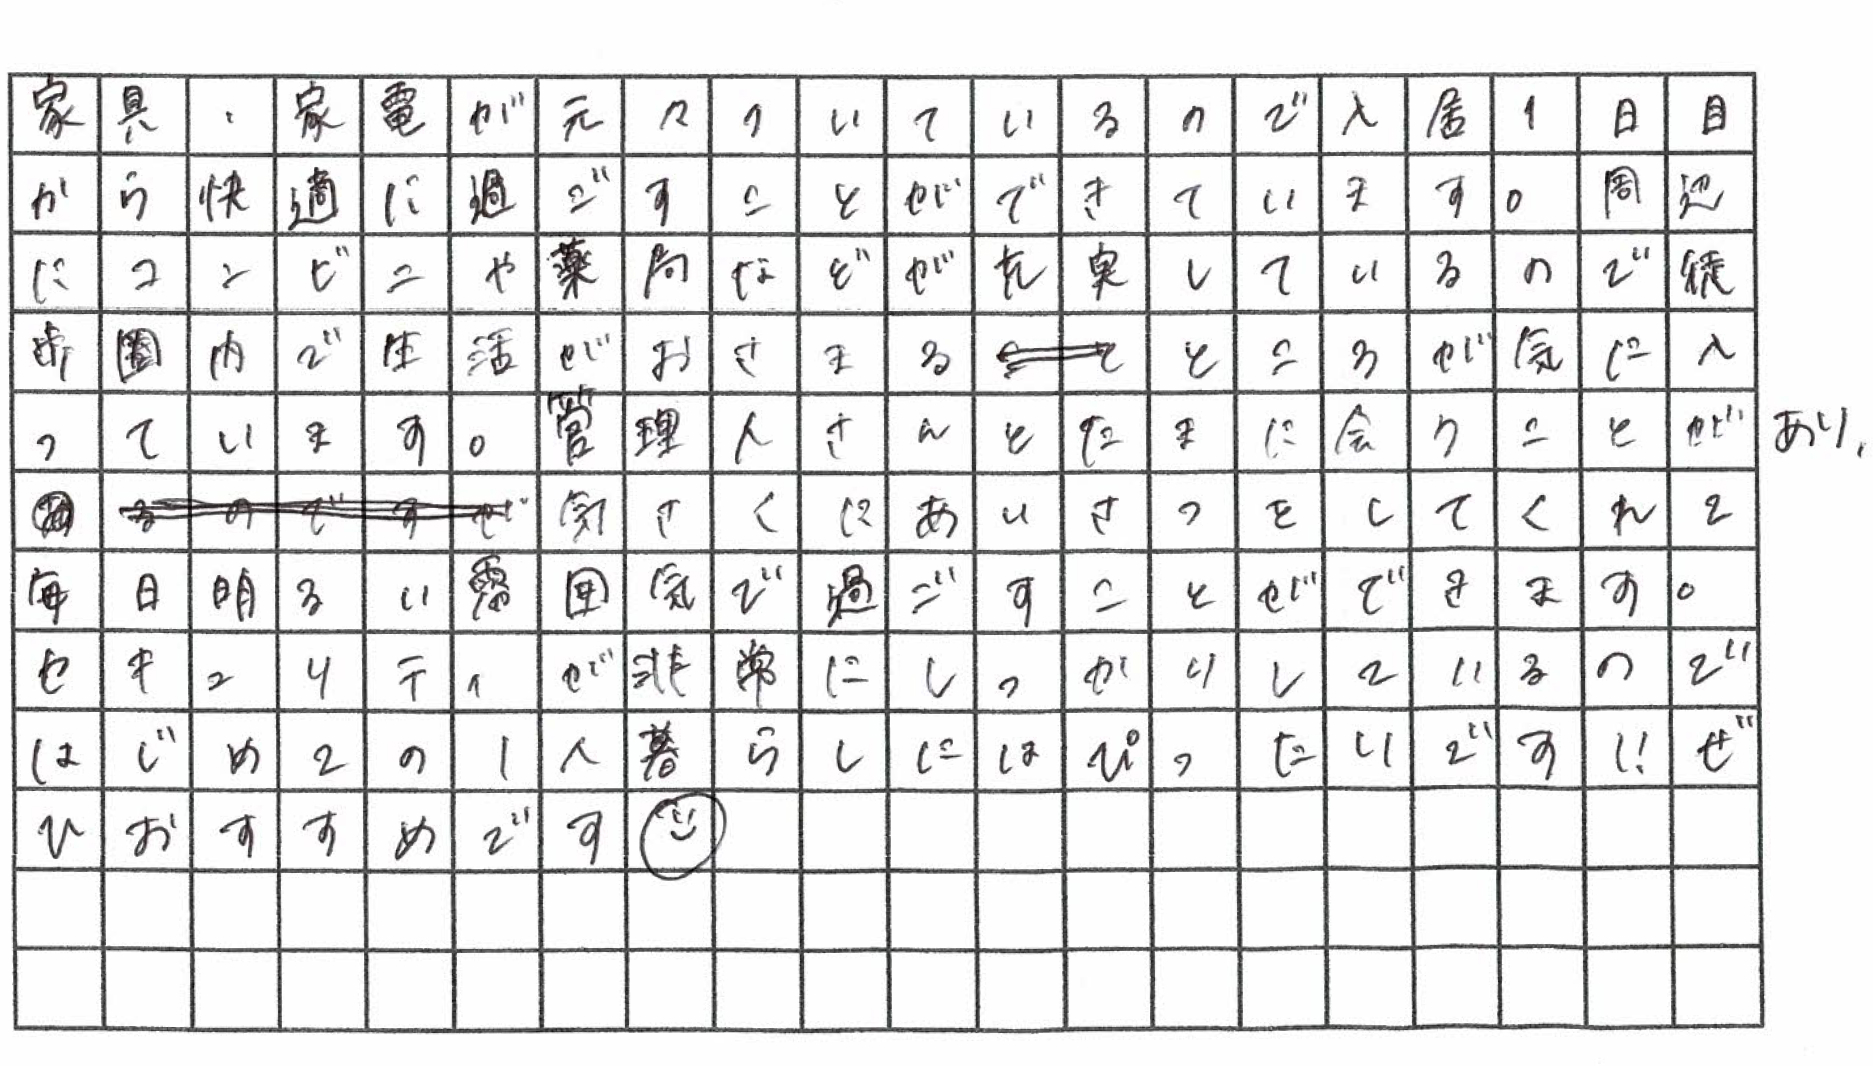 家具・家電が元々ついているので入居1日目
から快適に過ごすことができています。周辺
にコンビニや薬局などが充実しているので徒
歩圏内で生活がおさまるところが気に入
っています。管理人さんとたまに会うことがあり、
気さくにあいさつをしてくれて
毎日明るい雰囲気で過ごすことができます。
セキュリティが非常にしっかりしているので
はじめての1人暮らしにはぴったりです!!ぜ
ひおすすめです